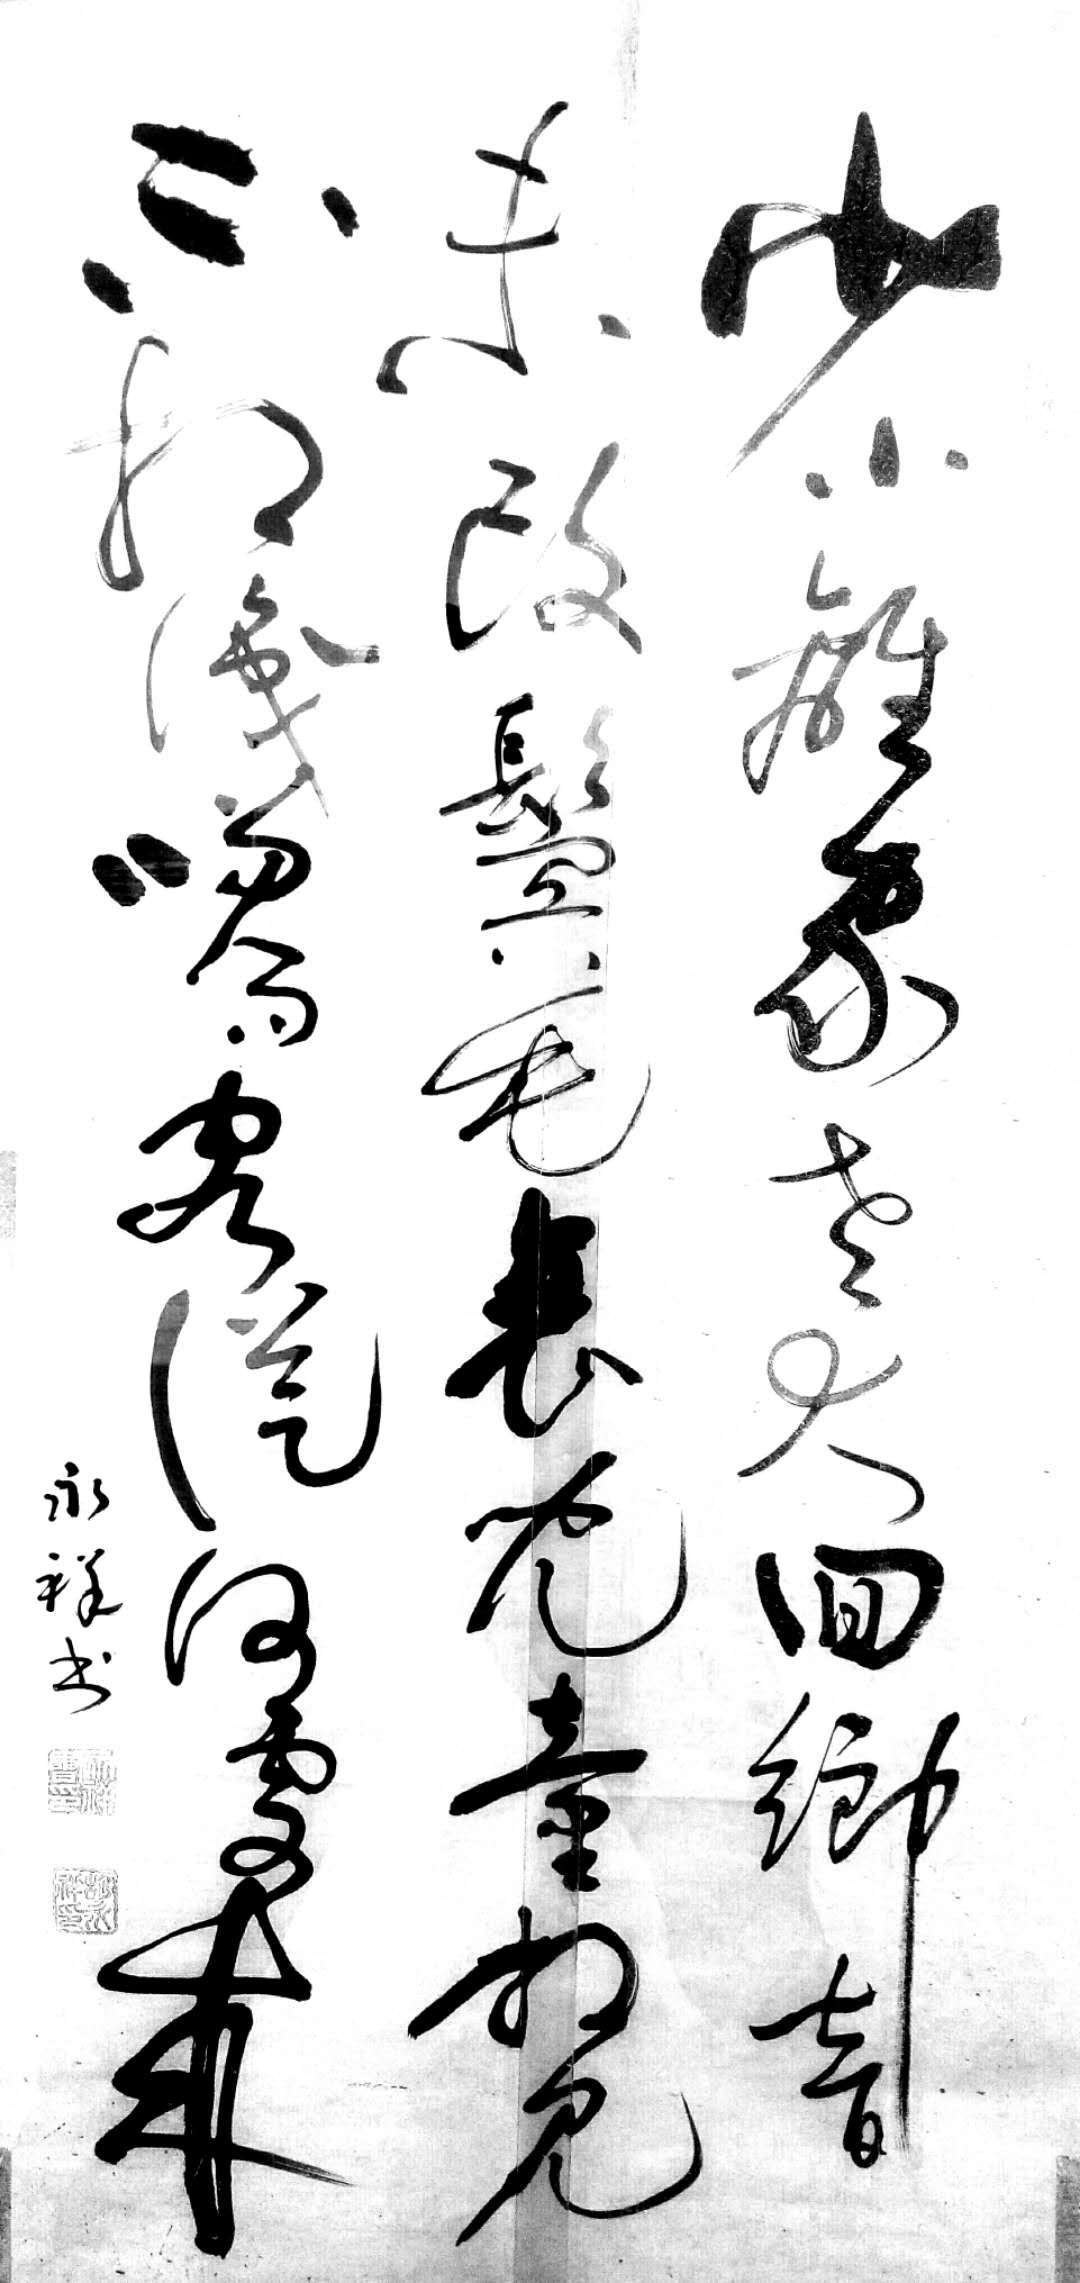 少小離家老大回鄉音
未改鬢毛衰兒童相見
不相識笑問客從何處來
永祥书